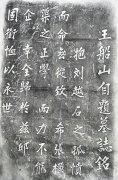 王船山自題墓誌銘
抱劉越石之孤憤
而命無從致希張橫
渠之正學而力不能
企幸全歸於茲邱
固銜恤以永世